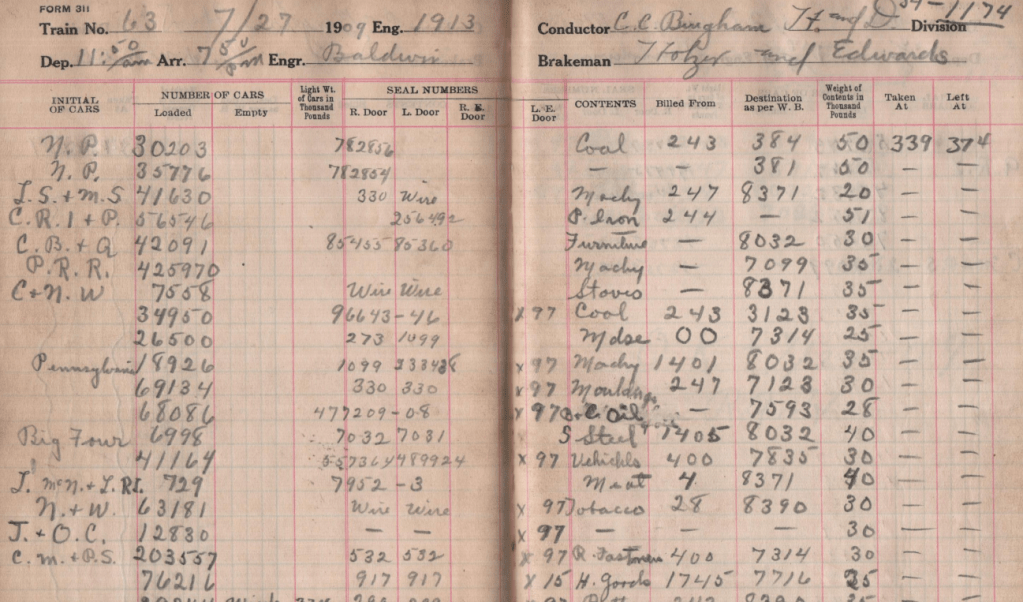 FORM 311
Train No. 63 7/27 1909 Eng. 1913 Conductor C.C. Bingham H. and D. Division 54-1174
Dep. 11:50 am Arr. 7 50 pm Engr. Baldwin Brakeman Hotzer and Edwards
INITIAL OF CARS NUMBER OF CARS Loaded Empty Light Wt. of Cars in Thousand Pounds SEAL NUMBERS R. Door L. Door R. E. Door L. E. Door CONTENTS Billed From Destination as per W. B. Weight of Contents in Thousand Pounds Taken At Left At
N. P. 30203 782856 Coal 243 384 50 339 374
N. P. 35776 782854 — 381 50 — —
L. S. + M. S 41630 330 Wire Machy 247 8371 20 — —
C. R. I + P. 56546 256492 P. Iron 244 — 51 — —
C. B. + Q 42091 85455 85360 Furniture — 8032 30 — —
P. R. R. 425970 Machy — 7099 35 — —
C + N. W 7558 Wire Wire Stoves — 8371 35 — —
34950 96643-46 x 97 Coal 243 3123 35 — —
26500 273 1499 Mdse 00 7314 25 — —
Pennsylvania 18926 1099 x 97 Machy 1401 8032 35 — —
69134 330 330 x 97 Mouldings 247 7123 30 — —
68086 477209-08 x 97 Oil — 7593 28 — —
Big Four 6998 7032 7031 S Steel 1405 8032 40 — —
41164 557364 489924 x 97 Vehichls 400 7835 30 — —
729 7952-3 Meat 4 8371 40 — —
N. + W. 63181 Wire Wire x 97 Tobacco 28 8390 30 — —
T. + O. C. 12830 — — x 97 — — 30 — —
C. M. + P. S. 203557 532 532 x 97 R. Fastners 400 7314 30 — —
76216 917 917 x 15 H. Goods 1745 7716 35 — —